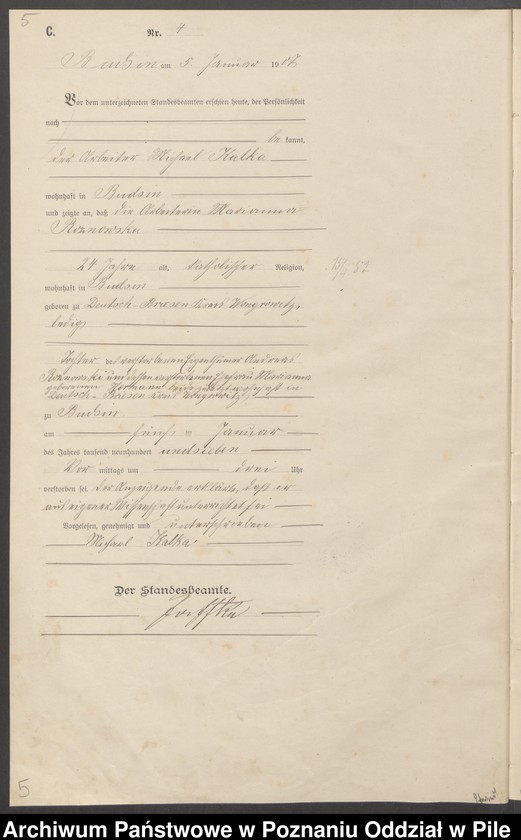 5
C. Nr. 4
Budsin am 5. Januar 1907
Vor dem unterzeichneten Standesbeamten erschien heute, der Persönlichkeit
nach
be kannt,
der Arbeiter Michael Kalka
wohnhaft in Budsin
und zeigte an, daß die Arbeiterin Marianna
Roznowska
24 Jahre alt, katholischer Religion,
wohnhaft in Budsin
geboren zu Deutsch-Briesen Kreis Wongrowitz,
ledig,
Tochter des verstorbenen Eigentümer Andreas
Roznowski und dessen verstorbenen Ehefrau Marianna
geborenen zuletzt wohnhaft in
Deutsch-Briesen Kreis Wongrowitz,
zu Budsin
am fünften Januar
des Jahres tausend neunhundert und sieben
Vor mittags um drei Uhr
verstorben sei. Der Anzeigende erklärte, daß er
aus eigener Wissenschaft unterrichtet sei
Vorgelesen, genehmigt und unterschrieben
Michael Kalka
Der Standesbeamte.
5
Archiwum Państwowe w Poznaniu Oddział w Pile